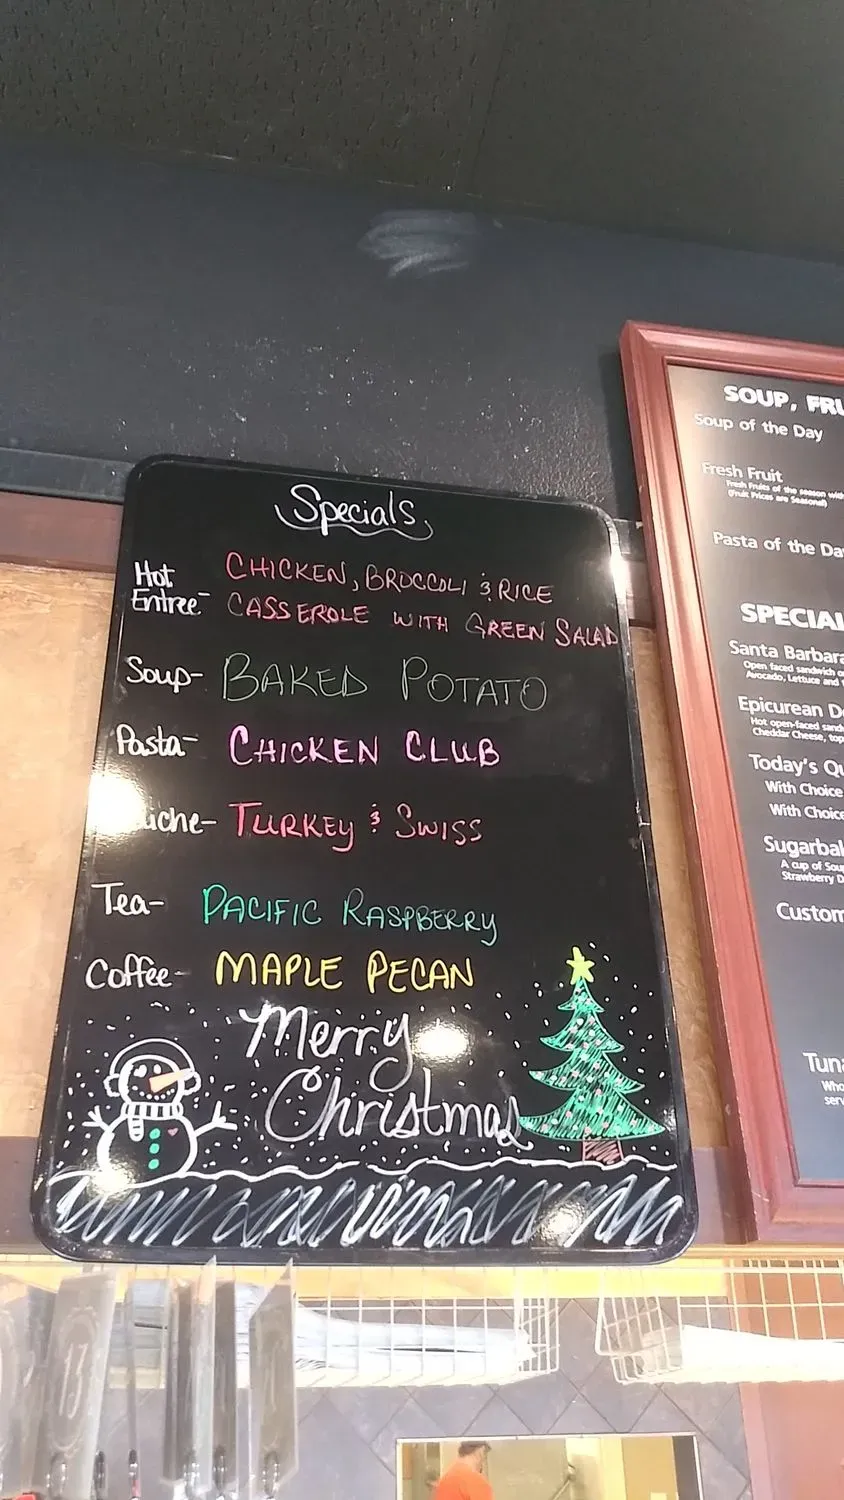 Specials
Hot Entree- CHICKEN, BROCCOLI & RICE
CASSEROLE WITH GREEN SALAD
Soup- BAKED POTATO
Pasta- CHICKEN CLUB
uche- TURKEY & SWISS
Tea- PACIFIC RASPBERRY
Coffee- MAPLE PECAN
Merry
Christmas
SOUP, FRU
Soup of the Day
Fresh Fruit
Fresh Fruits of the season with
(Fruit Prices are Seasonal)
Pasta of the Da
SPECIAL
Santa Barbara
Open faced sandwich o
Avocado, Lettuce and
Epicurean De
Hot open-faced sand
Cheddar Cheese, top
Today's Qu
With Choice
With Choice
Sugarbak
A cup of Sou
Strawberry D
Custom
Tuna
Who
serv
13